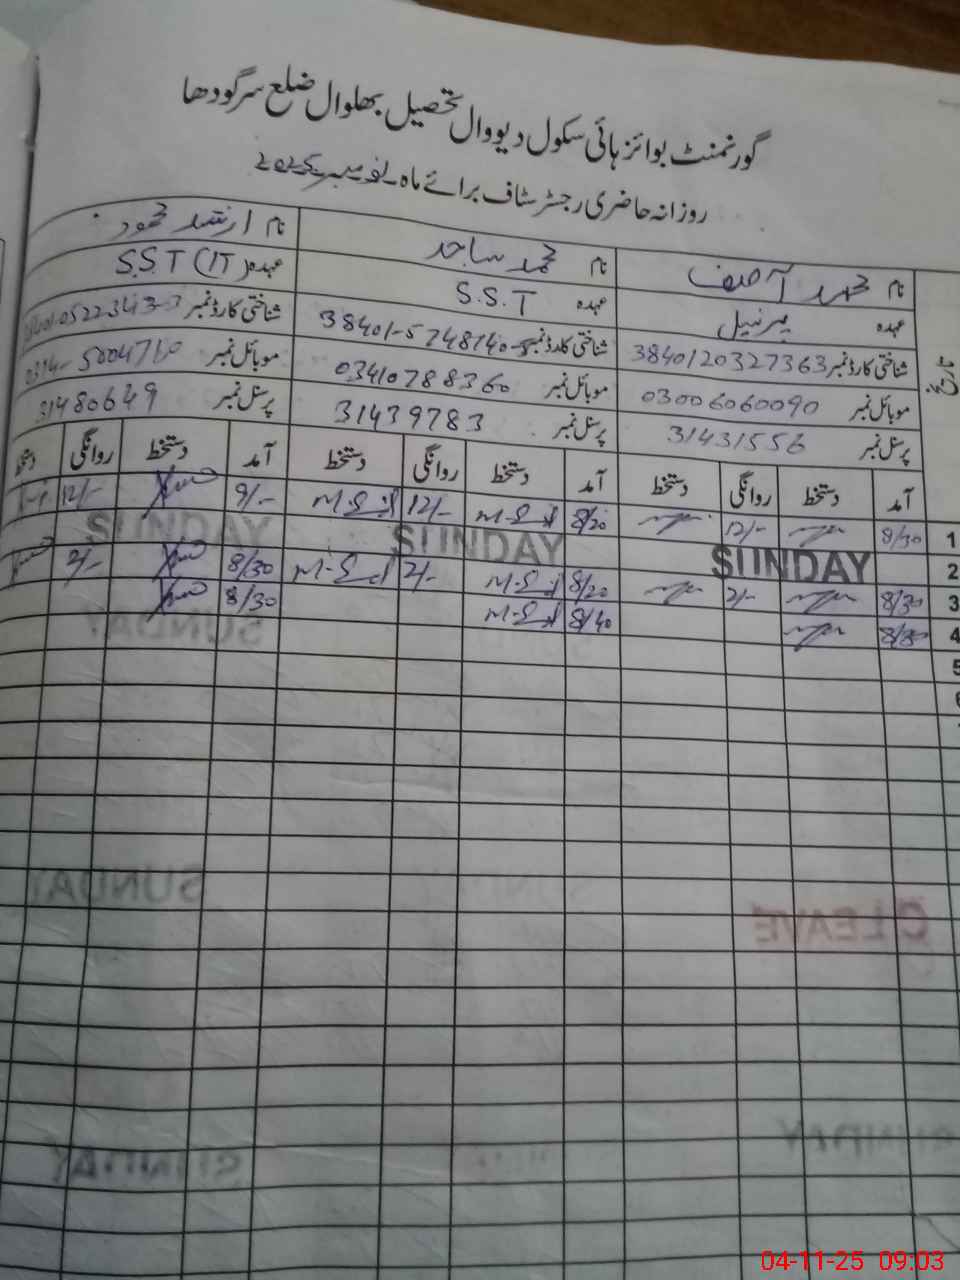 گورنمنٹ بوائز ہائی سکول دیووال تحصیل بھلوال ضلع سرگودھا
روزانہ حاضری رجسٹر سٹاف برائے ماہ نومبر 2025
نام محمد آصف نام محمد ساجد نام ارشد محمود
عہدہ پرنسپل عہدہ S.S.T عہدہ S.S.T (IT)
شناختی کارڈ نمبر 3840120327363 شناختی کارڈ نمبر 38401-5748140- شناختی کارڈ نمبر
موبائل نمبر 03006060090 موبائل نمبر 03410788360 موبائل نمبر 0314-5004710
پرسنل نمبر 31431556 پرسنل نمبر 31439783 پرسنل نمبر 31480649
تاریخ آمد دستخط روانگی دستخط آمد دستخط روانگی دستخط آمد دستخط روانگی دستخط
1 8/30 12/- 8/20 12/- 9/- 12/-
2 SUNDAY SUNDAY SUNDAY
3 8/30 2/- 8/20 2/- 8/30 2/-
4 8/30 8/40 8/30
5
6
04-11-25 09:03